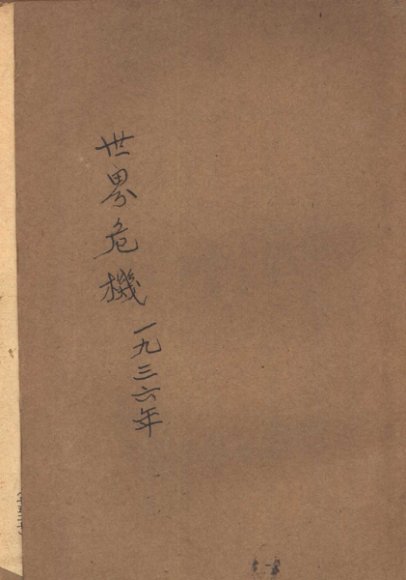 世界危機
一九三六年